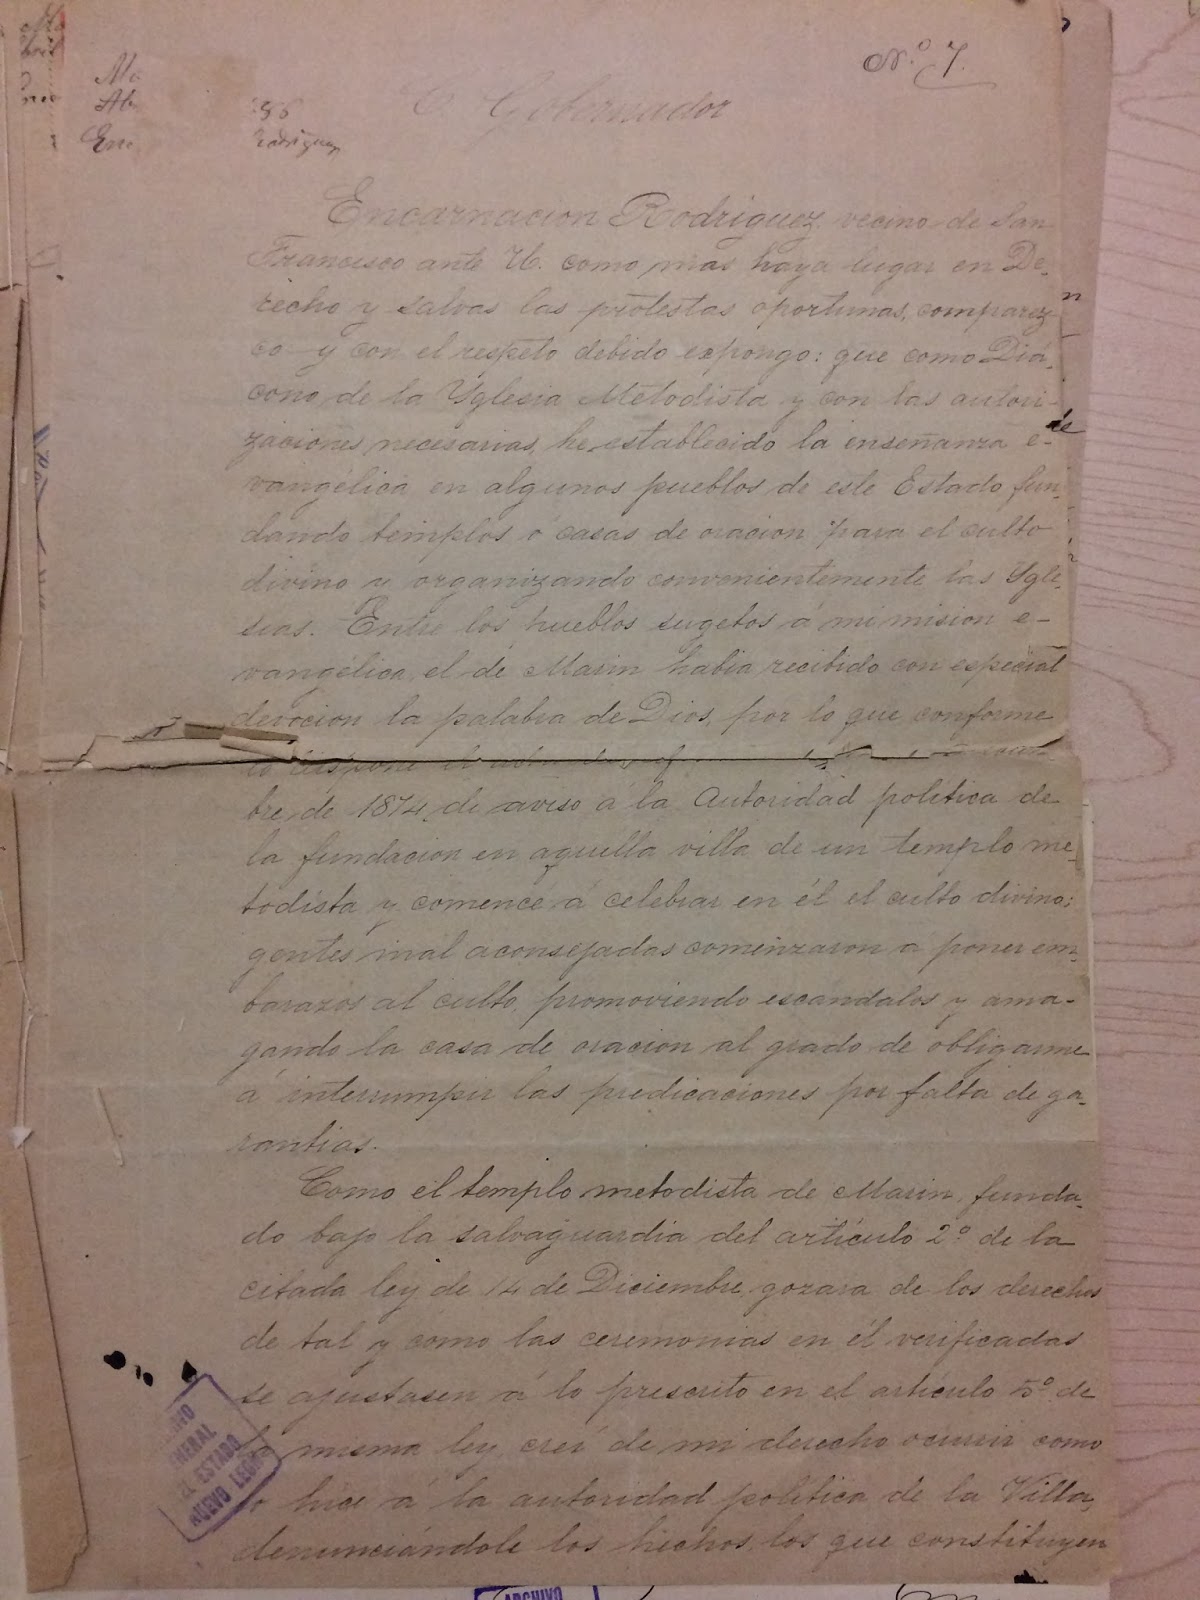 Nº 7.
C. Gobernador
Rodriguez
Encarnacion Rodriguez vecino de San
Francisco ante U. como mas haya lugar en De-
recho y salvas las protestas oportunas, comparez-
co y con el respeto debido expongo: que como Diá-
cono de la Yglesia Metodista y con las autori-
zaciones necesarias, he establecido la enseñanza e-
vangélica en algunos pueblos de este Estado fun-
dando templos ó casas de oracion para el culto
divino y organizando convenientemente las Ygle-
sias. Entre los pueblos sugetos á mi mision e-
vangélica, el de Marin habia recibido con especial
devocion la palabra de Dios, por lo que conforme
lo dispone el
bre de 1874, de aviso a la Autoridad politica de
la fundacion en aquella villa de un templo me-
todista y comencé á celebrar en él el culto divino;
gentes mal aconsejadas comenzaron a poner em-
barazos al culto, promoviendo escandalos y ama-
gando la casa de oracion al grado de obligarme
á interrumpir las predicaciones por falta de ga-
rantias.
Como el templo metodista de Marin, funda-
do bajo la salvaguardia del artículo 2º de la
citada ley de 14 de Diciembre, gozara de los derechos
de tal y como las ceremonias en él verificadas
se ajustasen á lo prescrito en el artículo 5º de
la misma ley, creí de mi derecho ocurrir como
lo hice á la autoridad política de la Villa,
denunciándole los hechos, los que constituyen
GENERAL
EL ESTADO
NUEVO LEON
ARCHIVO